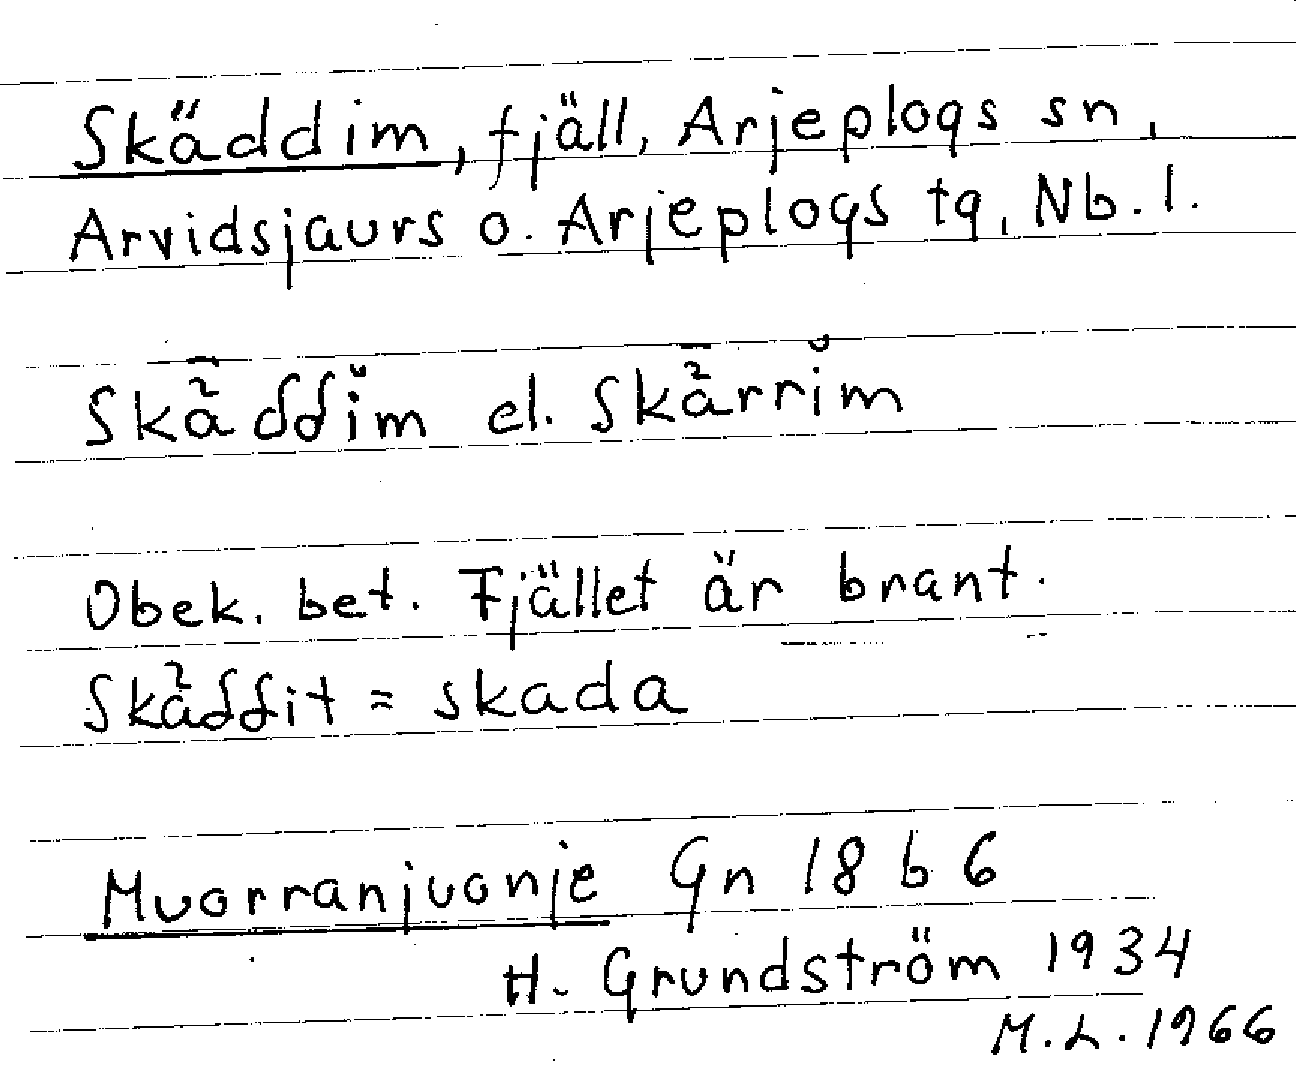 Skäddim, fjäll, Arjeplogs sn,
Arvidsjaurs o. Arjeplogs tg, Nb. l.
Skā̉ddĭm el. Skā̉rrĭm
Obek. bet. Fjället är brant.
Skảddit = skada
Muorranjuonje Gn 18 b 6
H. Grundström 1934
M.L. 1966